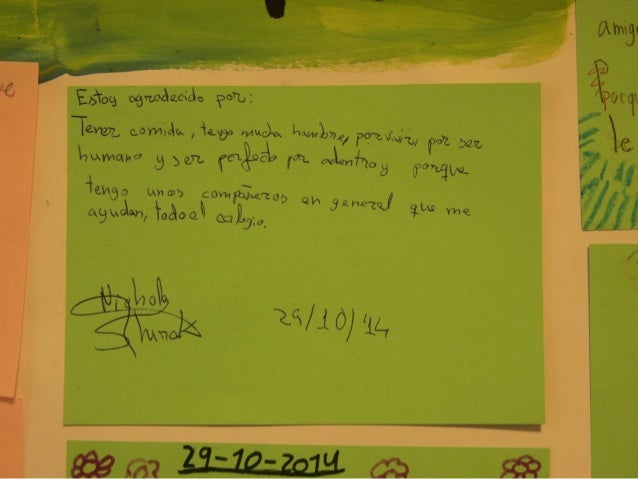 Estoy agradecido por:
Tener comida, tengo mucha hambre, por vivir, por ser
humano y ser perfecto por adentro y porque
tengo unos compañeros en general que me
ayudan, todo el colegio.
29/10/14
29-10-2014
amig
porqu
le